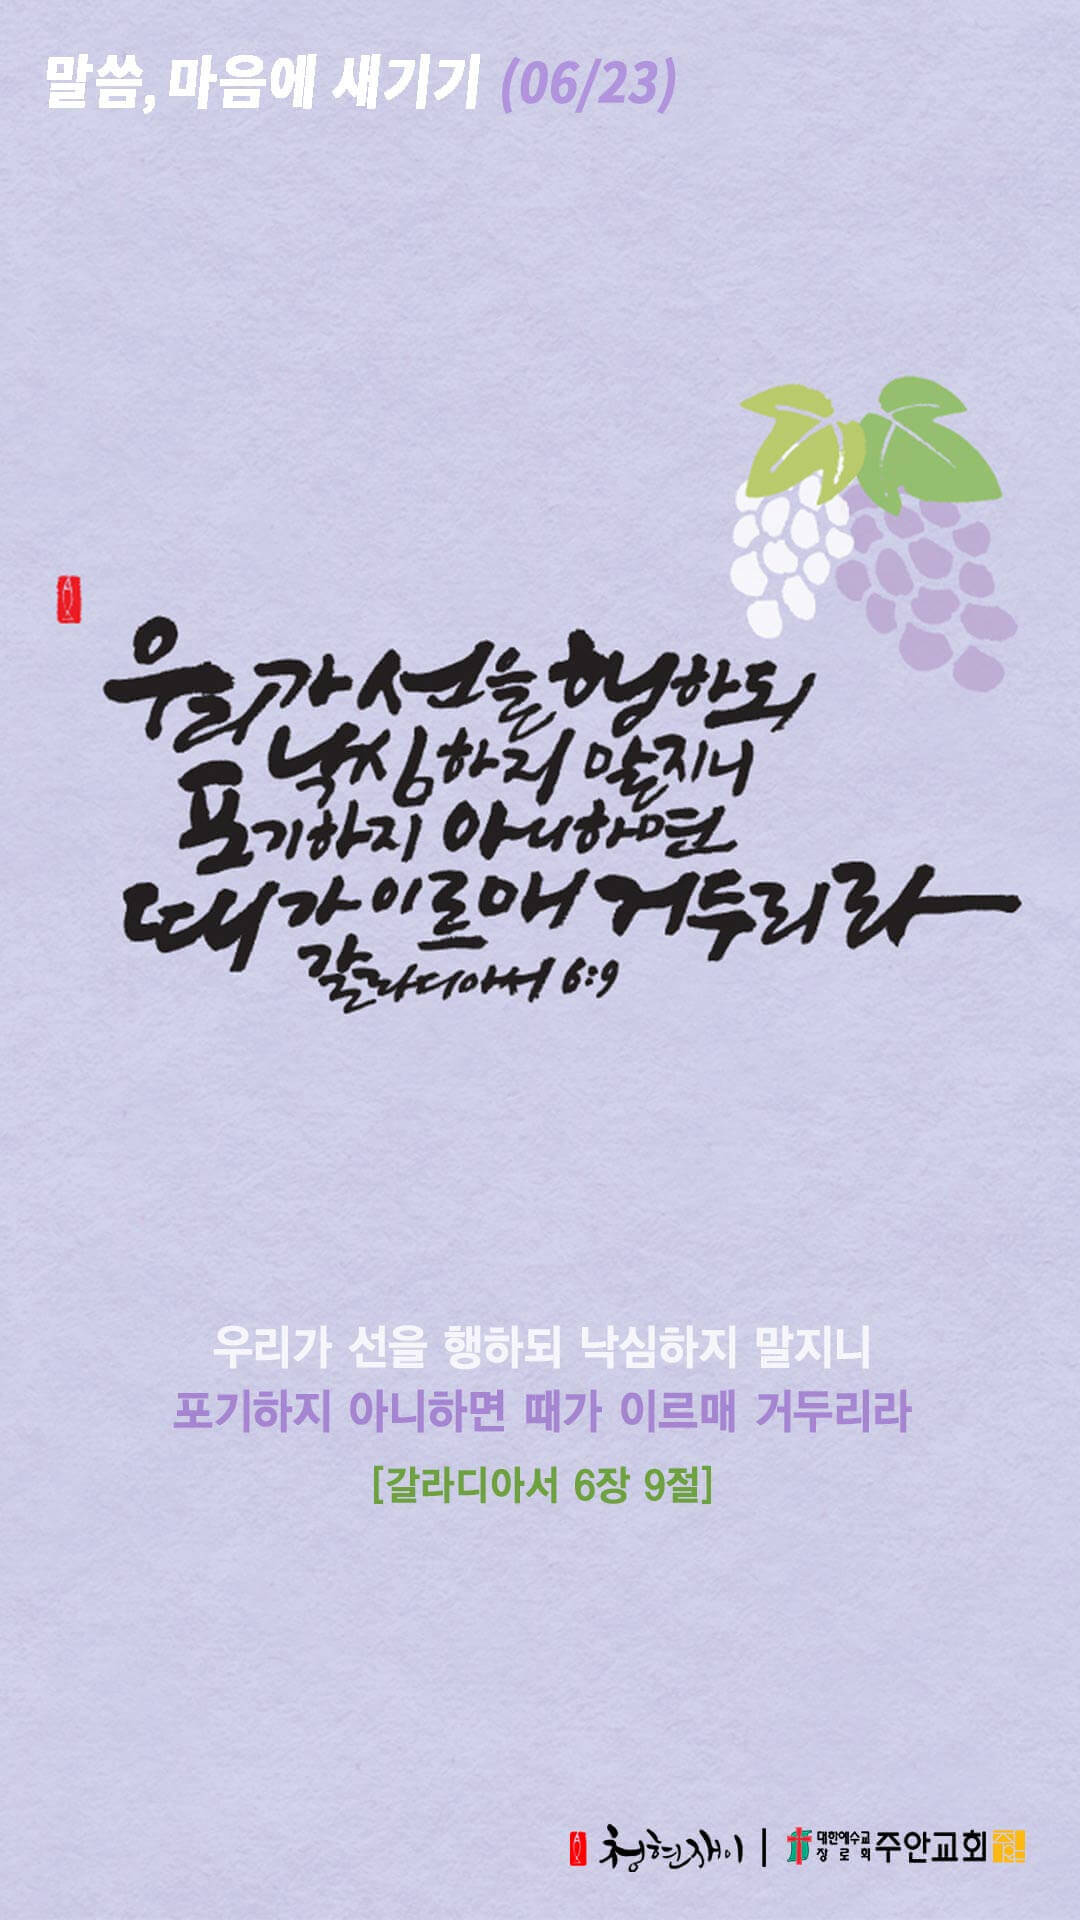 말씀, 마음에 새기기 (06/23)
우리가 선을 행하되
낙심하지 말지니
포기하지 아니하면
때가 이르매 거두리라
갈라디아서 6:9
우리가 선을 행하되 낙심하지 말지니
포기하지 아니하면 때가 이르매 거두리라
[갈라디아서 6장 9절]
청현재이 | 대한예수교 장로회 주안교회